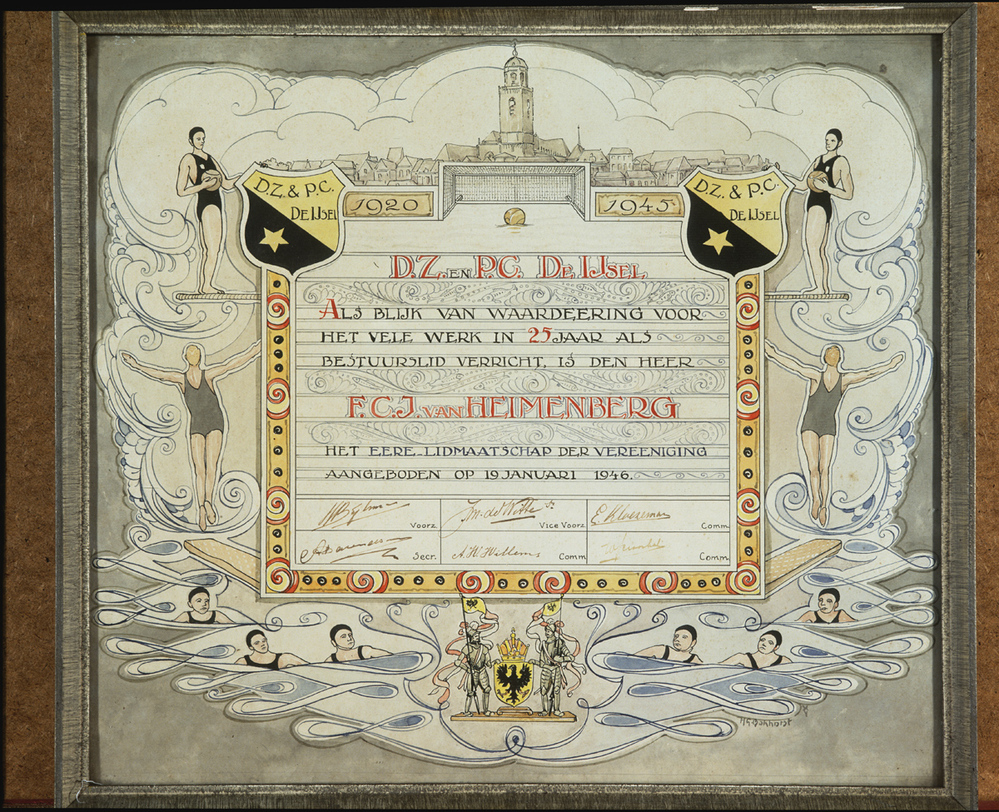 D.Z. & P.C.
DE IJSEL
1920
1945
D.Z. & P.C.
DE IJSEL
D.Z. EN P.C. DE IJSEL
ALS BLIJK VAN WAARDEERING VOOR
HET VELE WERK IN 25 JAAR ALS
BESTUURSLID VERRICHT, IS DEN HEER
F.C.J. VAN HEIMENBERG
HET EERE-LIDMAATSCHAP DER VEREENIGING
AANGEBODEN OP 19 JANUARI 1946.
Voorz.
Vice Voorz
Comm
Secr.
A.W. Willems
Comm
Comm